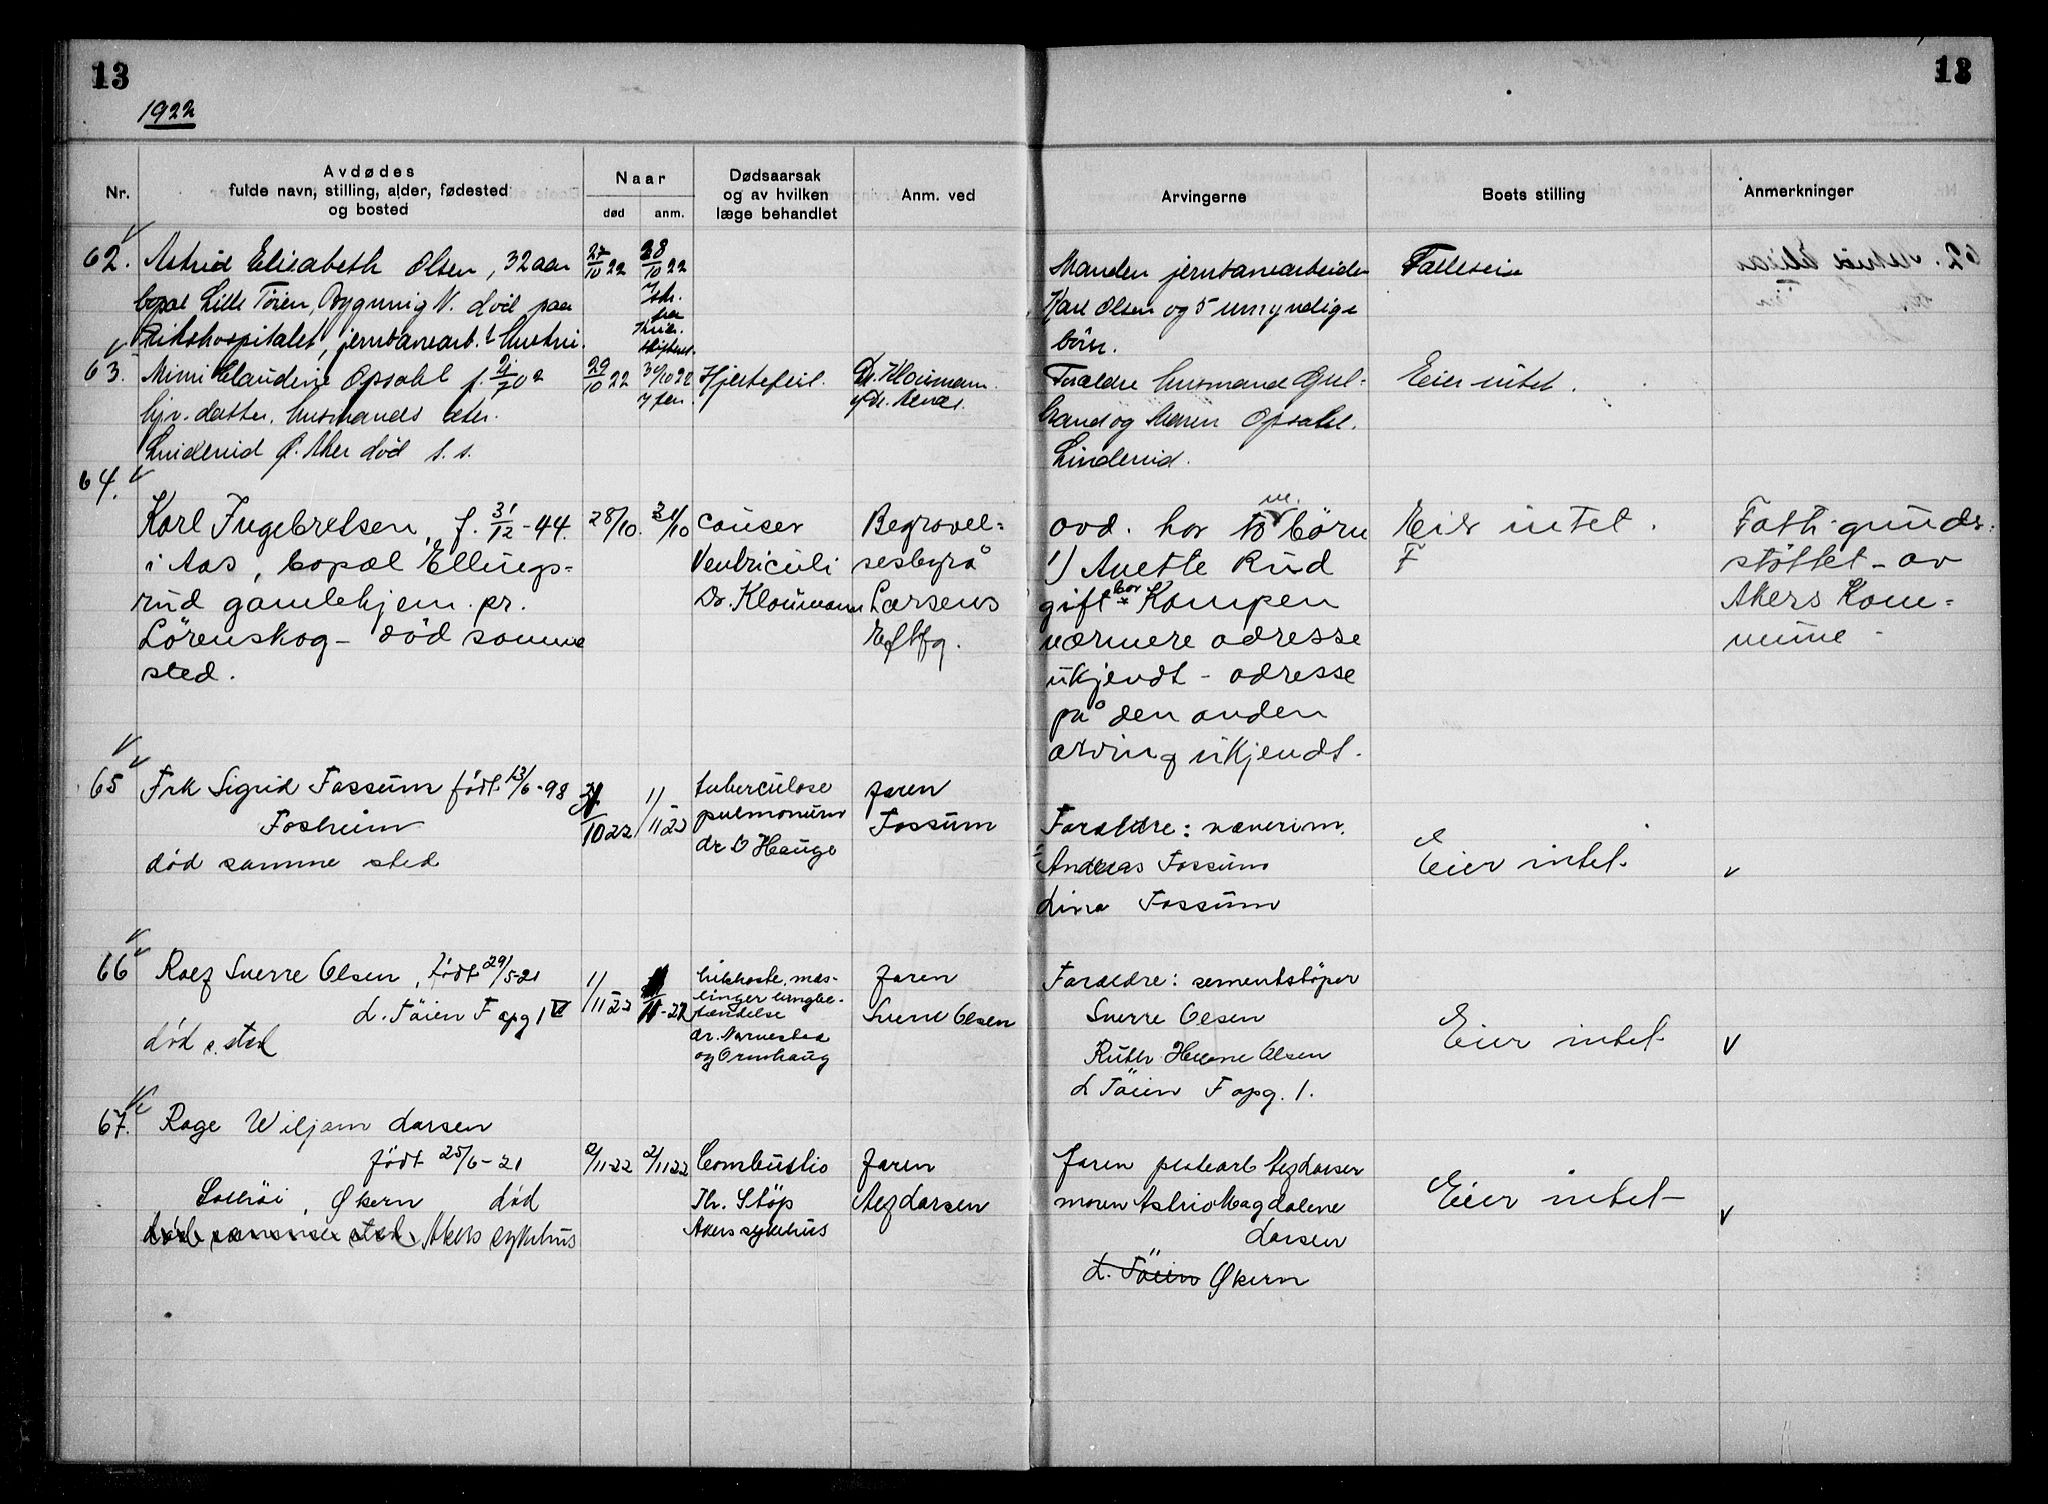 13
13
1922
Nr.
Avdødes
fulde navn, stilling, alder, fødested
og bosted
Naar
død
anm.
Dødsaarsak
og av hvilken
læge behandlet
Anm. ved
Arvingerne
Boets stilling
Anmerkninger
62. Astrid Elisabeth Olsen, 32 aar
bopæl Lille Töien, Bygning V. död paa
Rikshospitalet, jernbanearb.s hustru.
27/10 22
28/10 22
skr.
fra
skifteret.
Manden jernbanearbeider
Karl Olsen og 5 umyndige
börn.
Fælleseie
63. Mimi Claudine Opsahl f.
hjv. datter, husmands
Linderud Ø. Aker död s. s.
29/10 22
30/10 22
Hjertefeil.
Dr. Kloumann
Forældre husmand Gul-
brand og Maren Opsahl.
Linderud.
Eier intet.
64.
Karl Ingebretsen, f. 31/12 - 44.
i Aas, bopæl Ellings-
rud gamlehjem. pr.
Lörenskog - död samme
sted.
28/10.
31/10
cancer
Ventriculi
Dr. Kloumann
Begravel-
sesbyrå
Larsens
Eftfg.
avd. har to börn
1) Anette Rud
gift bor Kampen
nærmere adresse
ukjendt - adresse
på den anden
arving ukjendt.
Eier intet.
F
Fatt. - gunds.
stöttet - av
Akers Kom-
mune -
65 Frk Sigrid Fossum födt 13/6 - 98
Fosheim
död samme sted
31/10 22
1/11 22
tuberculose
pulmonum
dr O Hauge
faren
Fossum
Forældre:
Andreas Fossum
Lina Fossum
Eier intet.
66 Rolf Sverre Olsen, födt 29/5-21
L. Töien F opg 1 V
död s. sted
1/11 22
kikhoste, mæs-
linger lungebe-
tændelse
dr. Narvestad
og Ormhaug
faren
Sverre Olsen
Forældre: sementstöper
Sverre Olsen
Ruth Helene Olsen
L Töien F opg. 1.
Eier intet
67. Rage Wiljam Larsen
födt 25/6 - 21
Solhöi, Økern död
död samme sted. Akers sykehus
2/11-22
2/11 22
Combustio
Th. Støp
Akers sykehus
faren
Larsen
faren platearb Larsen
moren Astrid Magdalene
Larsen
L. Töien Økern
Eier intet